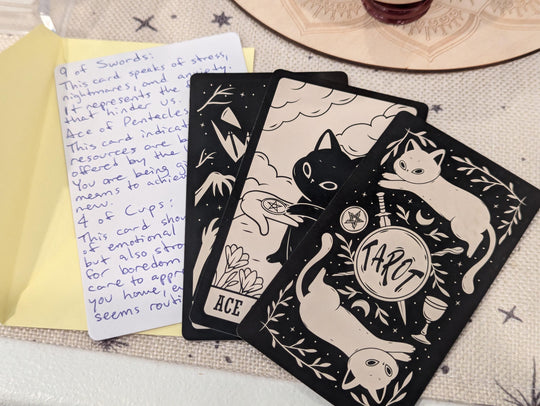 9 of Swords:
This card speaks of stress,
nightmares, and anxiety.
It represents the
that hinder us.
Ace of Pentacles
This card indicat
resources are
offered by the
You are being
means to achieve
new.
4 of Cups:
This card show
of emotional
but also
for boredom
care to
you have,
seems
ACE
TAROT